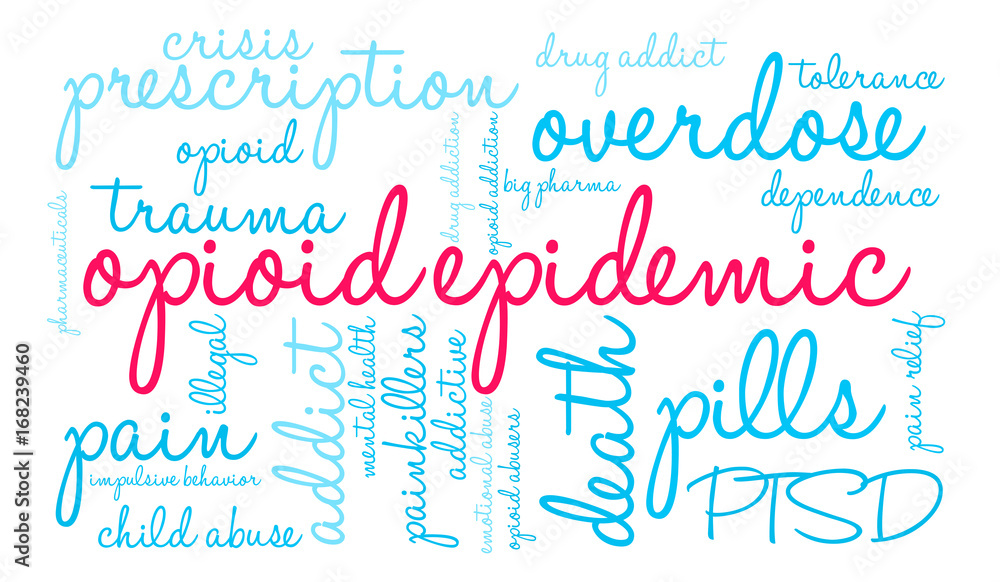 crisis
prescription
drug addict
tolerance
overdose
opioid
drug addiction
opioid addiction
big pharma
dependence
trauma
pharmaceuticals
opioid epidemic
illegal
addict
mental health
painkillers
addictive
emotional abuse
opioid abusers
death
pills
pain relief
pain
impulsive behavior
child abuse
PTSD
Adobe Stock | #168239460
Adobe Stock